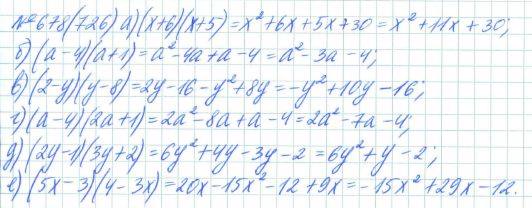 №678(726) а) (x+6)(x+5)=x²+6x+5x+30=x²+11x+30;
б) (a-4)(a+1)=a²-4a+a-4=a²-3a-4;
в) (2-y)(y-8)=2y-16-y²+8y=-y²+10y-16;
г) (a-4)(2a+1)=2a²-8a+a-4=2a²-7a-4;
д) (2y-1)(3y+2)=6y²+4y-3y-2=6y²+y-2;
е) (5x-3)(4-3x)=20x-15x²-12+9x=-15x²+29x-12.